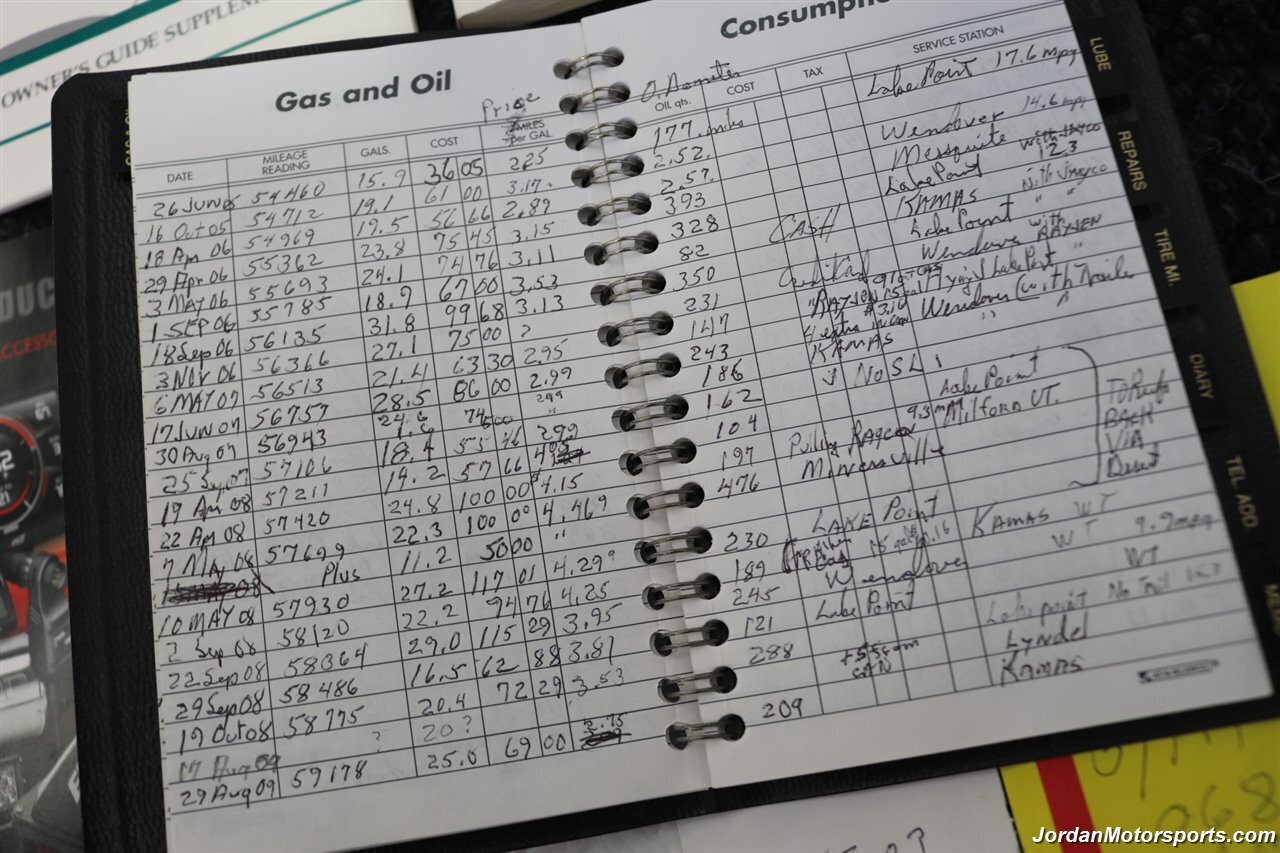 OWNER'S GUIDE SUPPLEM
Gas and Oil
Consumptio
Price
Odometer
DATE MILEAGE READING GALS. COST MILES per GAL.
OIL qts. COST TAX SERVICE STATION
26 JUN 05 54460 15.9 36 05 225
16 Oct 05 54712 19.1 61 00 3.17
18 Apr 06 54969 19.5 56 66 2.89
29 Apr 06 55362 23.8 75 45 3.15
3 MAY 06 55693 24.1 74 76 3.11
1 SEP 06 55785 18.9 67 00 3.53
18 Sep 06 56135 31.8 99 68 3.13
3 Nov 06 56366 27.1 75 00 ?
6 MAY 07 56513 21.4 63 30 2.95
17 JUN 07 56757 28.5 86 00 2.99
30 Aug 07 56943 24.6 74
25 Sep 07 57106 18.4 55 46 299
19 Apr 08 57211 14.2 57 66
22 Apr 08 57420 24.8 100 00 4.15
7 MAy 08 57699 22.3 100 00 4.469
Plus 11.2 50 00 "
10 MAY 08 57930 27.2 117 01 4.299
2 Sep 08 58120 22.2 94 76 4.25
22 Sep 08 58364 29.0 115 29 3.95
29 Sep 08 58486 16.5 62 88 3.81
19 Oct 08 58775 20.4 72 29 3.53
17 Aug 09 ? 20 ?
29 Aug 09 59178 25.0 69 00 2.75
177 miles Lake Point 17.6 mpg
252 Wendover 14.6 mpg
257 Mesquite
393 Lake Point 12.3
328 CASH KAMAS
82 Lake Point
350 Credit Card Wendover with
231 Lake Point
147 4 extra in can Wendover (with Trailer
243 KAMAS "
186 No SL
162 Lake Point
104 9.3 mpg Milford UT.
197 Pulling
476 Minersville
BACK
VIA
230 LAKE Point KAMAS WT
189 WT 9.9 mpg
245 Wendover WT
121 Lake Point
288 Lake point
+5 can Lyndel
209 KAMAS
LUBE
REPAIRS
TIRE MI.
DIARY
TEL. ADD
DUC
ACCESSO
JordanMotorsports.com